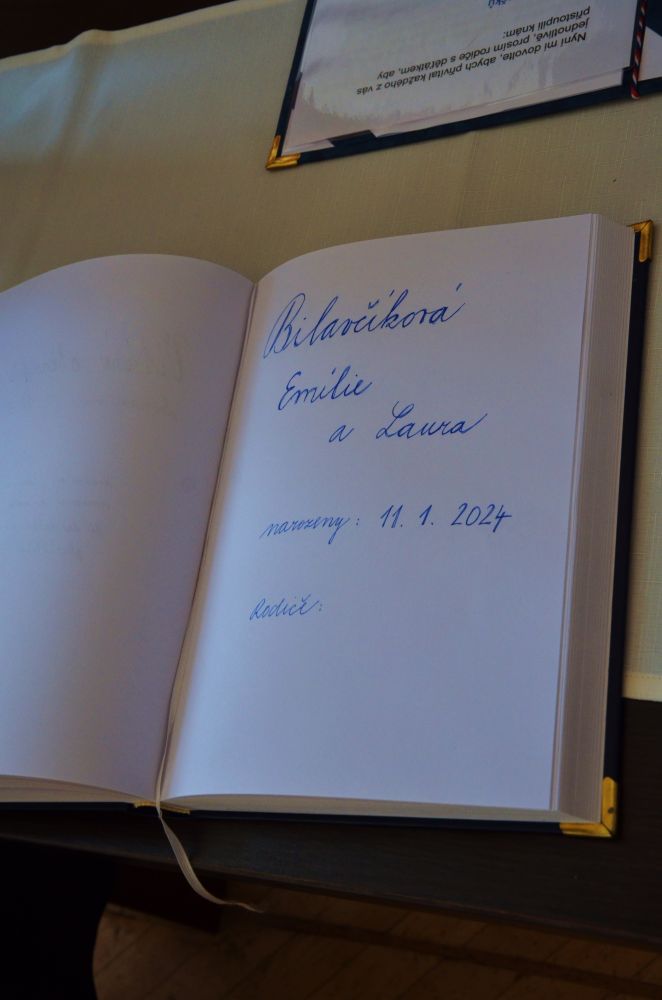 Nyní mi dovolte, abych přivítal každého z vás
jednotlivě, prosím rodiče s děťátkem, aby
přistoupili k nám:
Bilavčíková
Emílie
a Laura
narozeny: 11. 1. 2024
Rodiče: